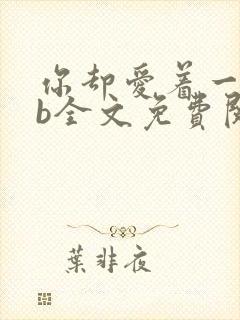 你却爱着一
b全文免費閱
葉非夜